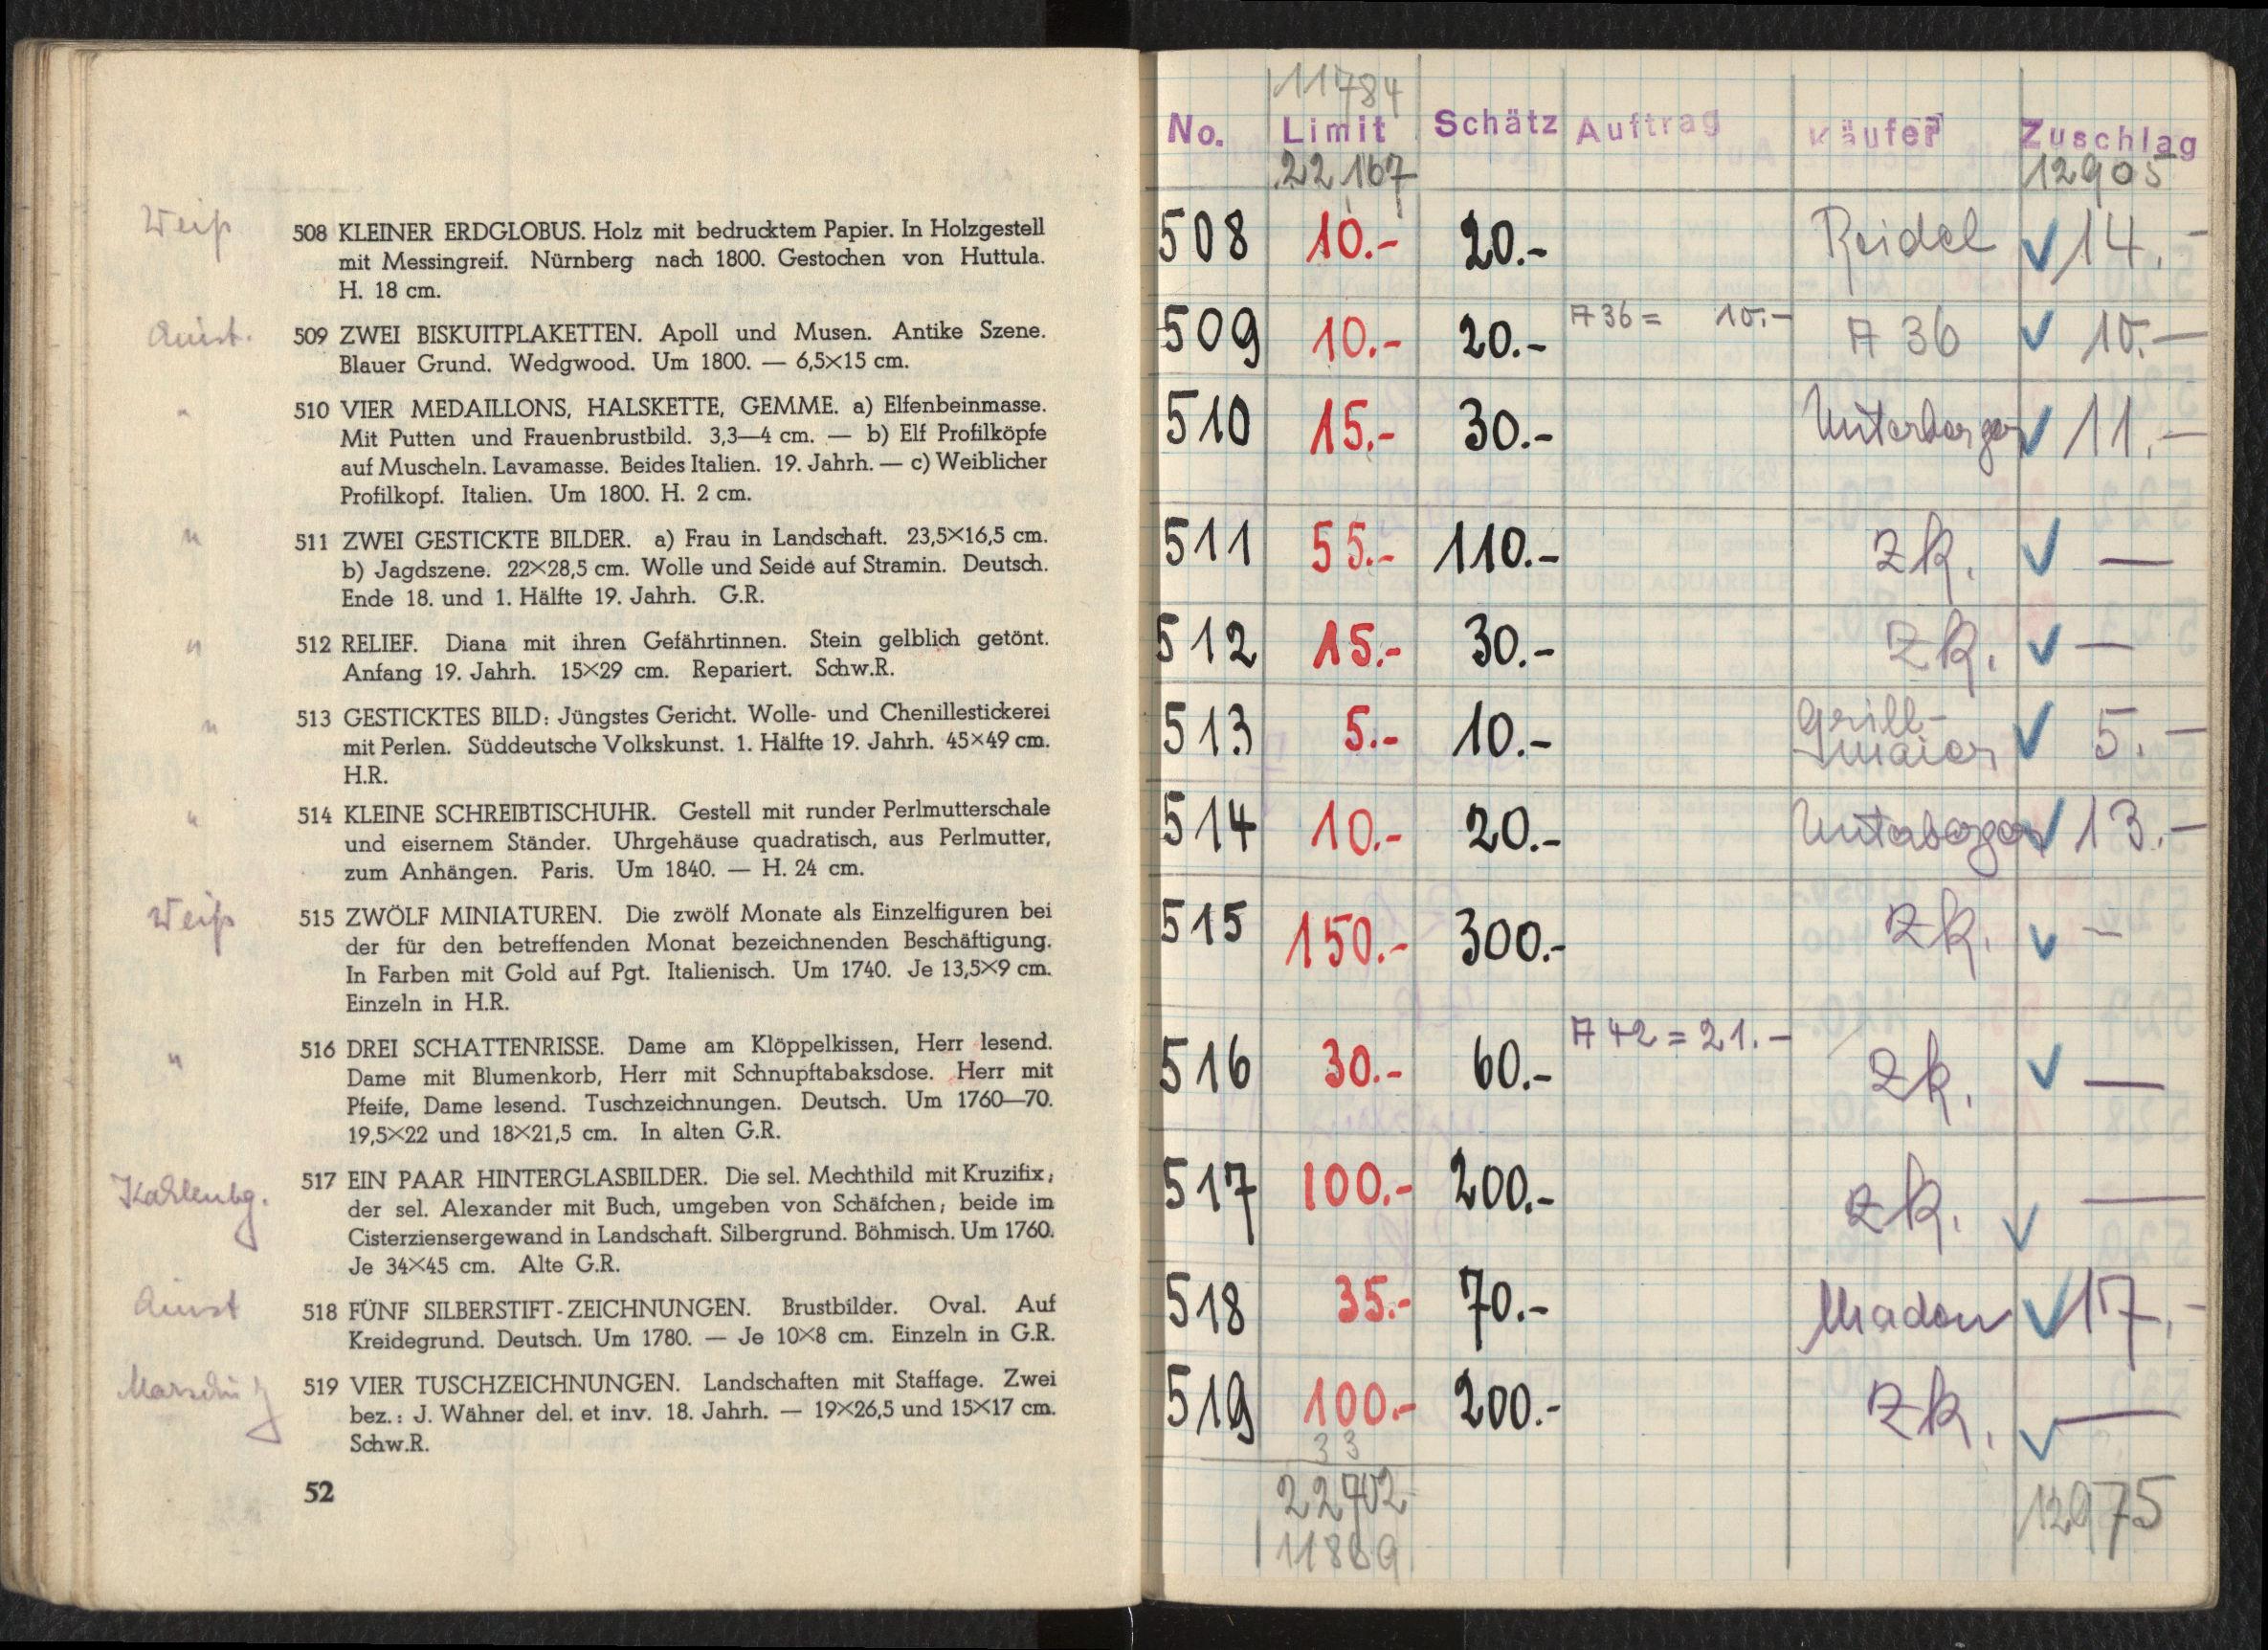 Weiß
508 KLEINER ERDGLOBUS. Holz mit bedrucktem Papier. In Holzgestell
mit Messingreif. Nürnberg nach 1800. Gestochen von Huttula.
H. 18 cm.
509 ZWEI BISKUITPLAKETTEN. Apoll und Musen. Antike Szene.
Blauer Grund. Wedgwood. Um 1800. — 6,5×15 cm.
" 510 VIER MEDAILLONS, HALSKETTE, GEMME. a) Elfenbeinmasse.
Mit Putten und Frauenbrustbild. 3,3—4 cm. — b) Elf Profilköpfe
auf Muscheln. Lavamasse. Beides Italien. 19. Jahrh. — c) Weiblicher
Profilkopf. Italien. Um 1800. H. 2 cm.
" 511 ZWEI GESTICKTE BILDER. a) Frau in Landschaft. 23,5×16,5 cm.
b) Jagdszene. 22×28,5 cm. Wolle und Seide auf Stramin. Deutsch.
Ende 18. und 1. Hälfte 19. Jahrh. G.R.
" 512 RELIEF. Diana mit ihren Gefährtinnen. Stein gelblich getönt.
Anfang 19. Jahrh. 15×29 cm. Repariert. Schw.R.
" 513 GESTICKTES BILD: Jüngstes Gericht. Wolle- und Chenillestickerei
mit Perlen. Süddeutsche Volkskunst. 1. Hälfte 19. Jahrh. 45×49 cm.
H.R.
" 514 KLEINE SCHREIBTISCHUHR. Gestell mit runder Perlmutterschale
und eisernem Ständer. Uhrgehäuse quadratisch, aus Perlmutter,
zum Anhängen. Paris. Um 1840. — H. 24 cm.
Weiß 515 ZWÖLF MINIATUREN. Die zwölf Monate als Einzelfiguren bei
der für den betreffenden Monat bezeichnenden Beschäftigung.
In Farben mit Gold auf Pgt. Italienisch. Um 1740. Je 13,5×9 cm.
Einzeln in H.R.
" 516 DREI SCHATTENRISSE. Dame am Klöppelkissen, Herr lesend.
Dame mit Blumenkorb, Herr mit Schnupftabaksdose. Herr mit
Pfeife, Dame lesend. Tuschzeichnungen. Deutsch. Um 1760—70.
19,5×22 und 18×21,5 cm. In alten G.R.
Kahlenbg. 517 EIN PAAR HINTERGLASBILDER. Die sel. Mechthild mit Kruzifix;
der sel. Alexander mit Buch, umgeben von Schäfchen; beide im
Cisterziensergewand in Landschaft. Silbergrund. Böhmisch. Um 1760.
Je 34×45 cm. Alte G.R.
518 FÜNF SILBERSTIFT-ZEICHNUNGEN. Brustbilder. Oval. Auf
Kreidegrund. Deutsch. Um 1780. — Je 10×8 cm. Einzeln in G.R.
519 VIER TUSCHZEICHNUNGEN. Landschaften mit Staffage. Zwei
bez.: J. Wähner del. et inv. 18. Jahrh. — 19×26,5 und 15×17 cm.
Schw.R.
52
11784
No. Limit Schätz Auftrag Käufer Zuschlag
22167 12905
508 10.- 20.- Reidel ✓ 14.-
509 10.- 20.- A 36 = 10.- A 36 ✓ 10.-
510 15.- 30.- Unterberger ✓ 11.-
511 55.- 110.- zk. ✓ —
512 15.- 30.- zk. ✓ —
513 5.- 10.- Grill-
maier ✓ 5.-
514 10.- 20.- Unterberger ✓ 13.-
515 150.- 300.- zk. ✓ —
516 30.- 60.- A 42 = 21.- zk. ✓ —
517 100.- 200.- zk. ✓ —
518 35.- 70.- ✓ 17.-
519 100.- 200.- zk. ✓ —
33
22702 12975